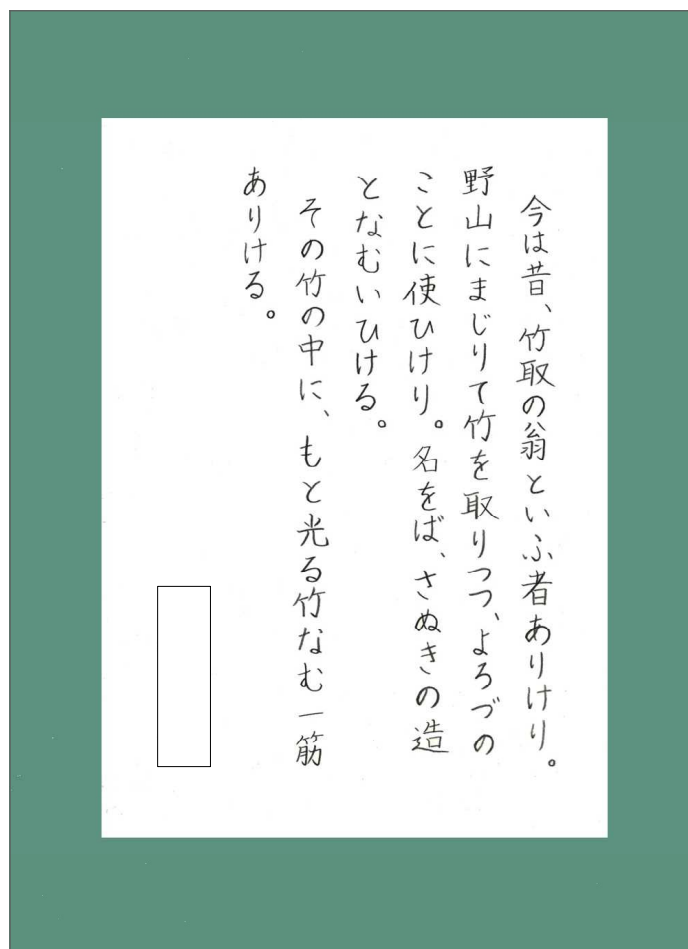 今は昔、竹取の翁といふ者ありけり。
野山にまじりて竹を取りつつ、よろづの
ことに使ひけり。名をば、さぬきの造
となむいひける。
その竹の中に、もと光る竹なむ一筋
ありける。